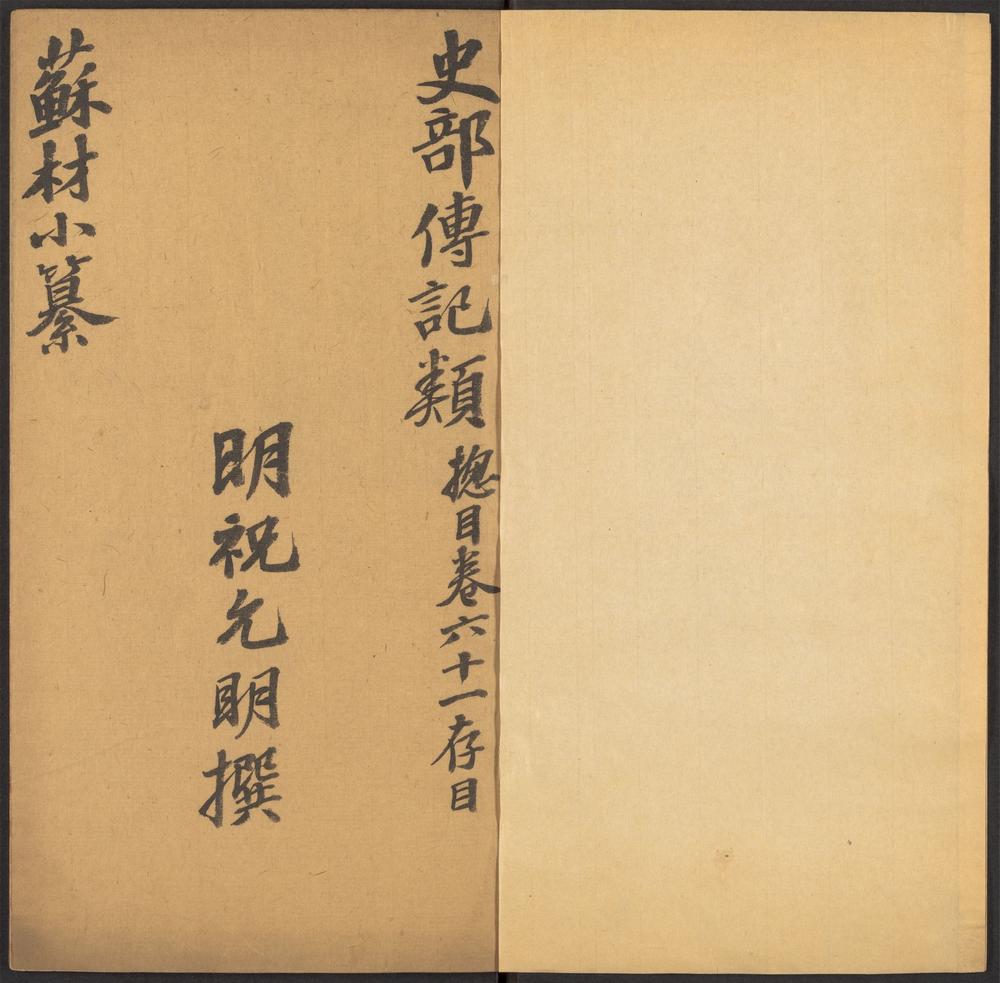 史部傳記類 揔目卷六十一存目
明祝允明撰
蘇材小纂